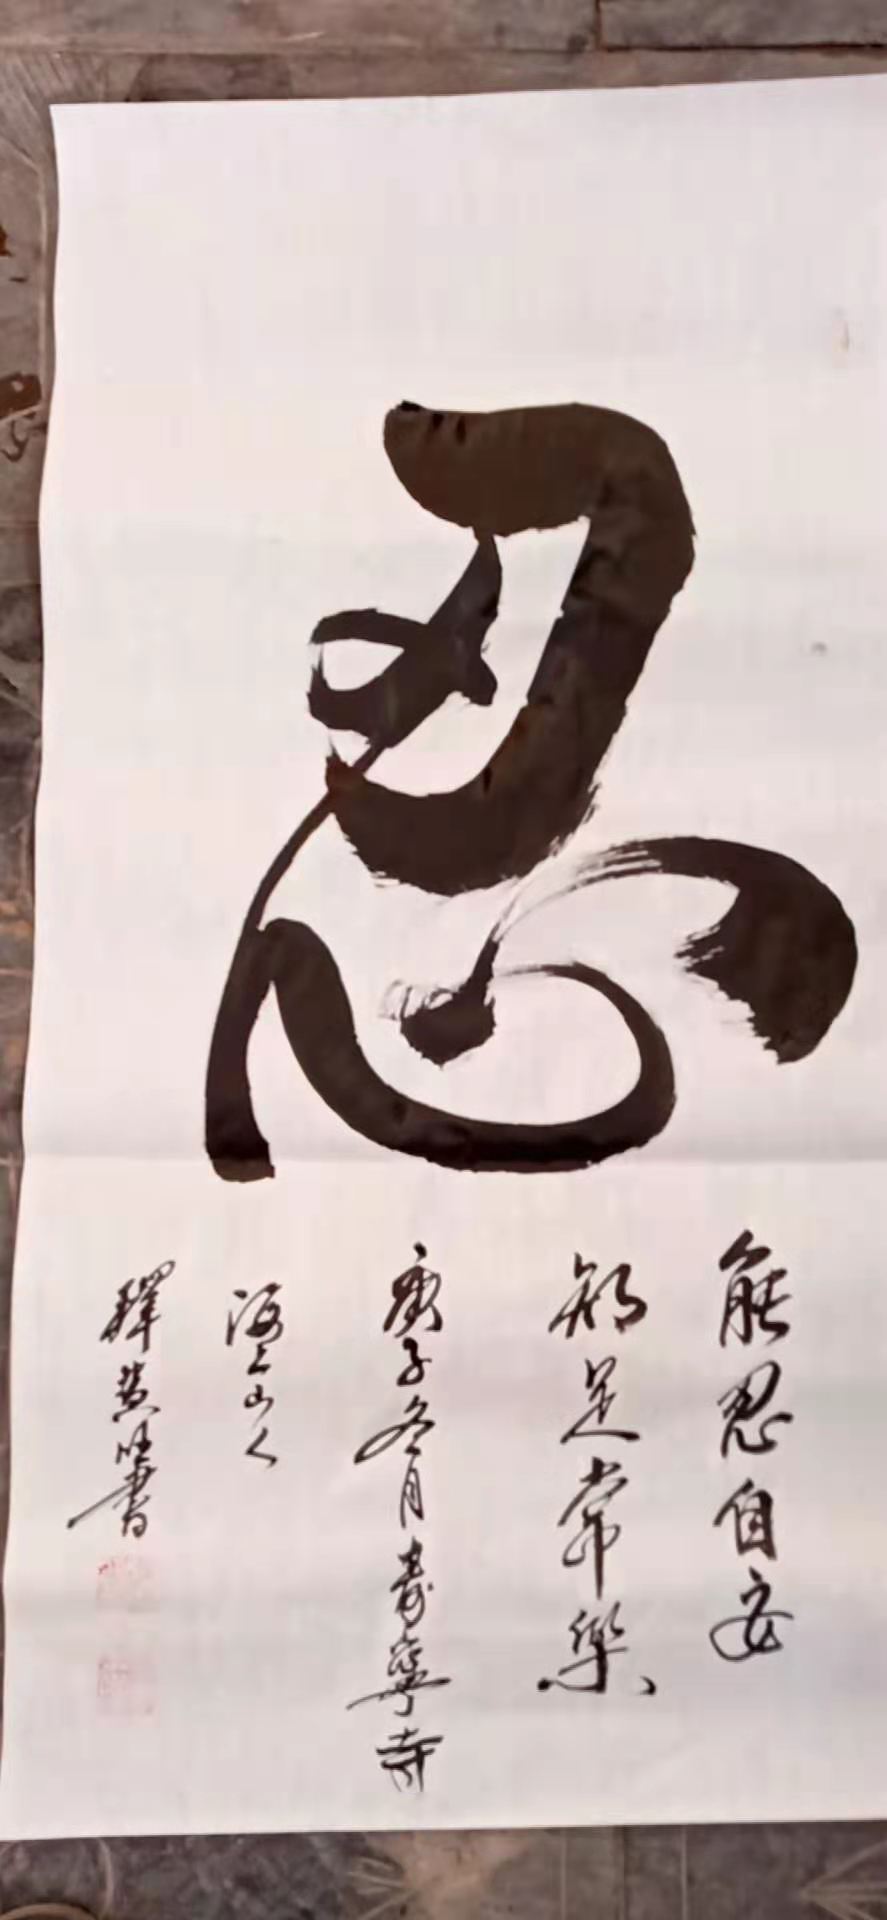 忍
能忍自安
知足常樂
庚子冬月壽寧寺
海上山人
釋慧旺書